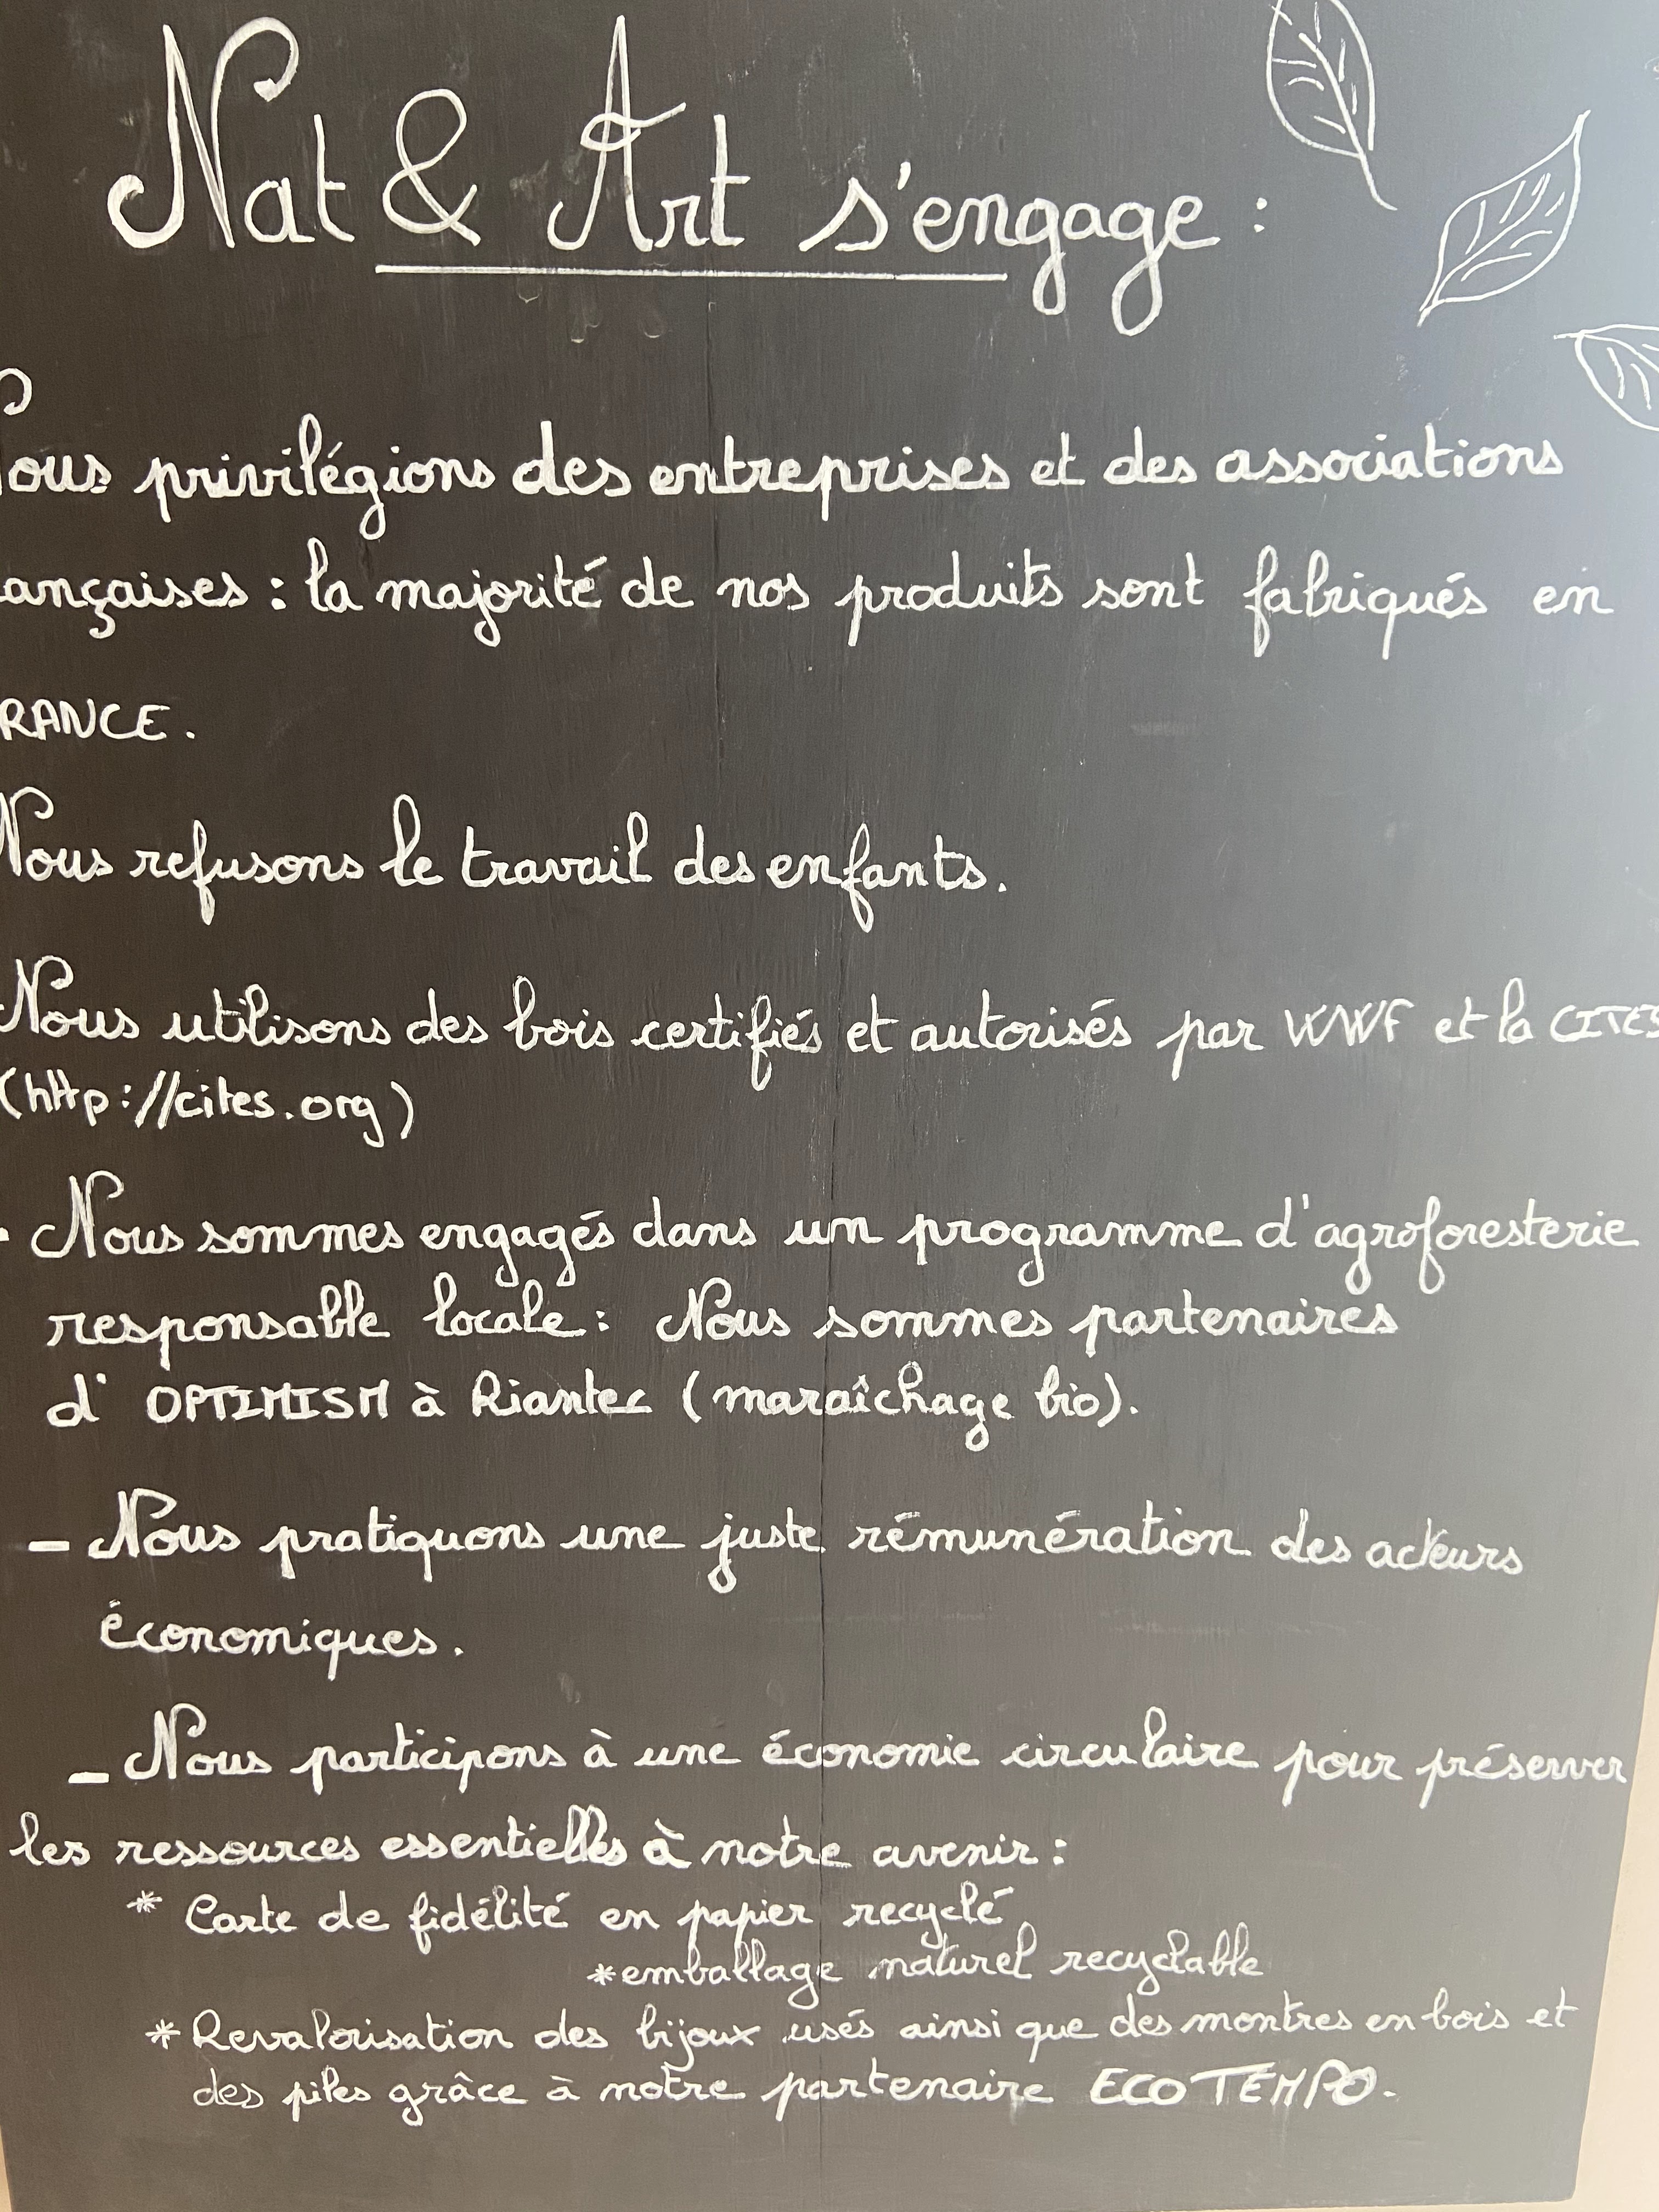 Nat & Art s'engage :
ous privilégions des entreprises et des associations
ançaises : la majorité de nos produits sont fabriqués en
RANCE.
Nous refusons le travail des enfants.
Nous utilisons des bois certifiés et autorisés par WWF et la CITES
(http://cites.org)
- Nous sommes engagés dans un programme d'agroforesterie
responsable locale : Nous sommes partenaires
d' OPTIMISM à Riantec (maraîchage bio).
- Nous pratiquons une juste rémunération des acteurs
économiques.
- Nous participons à une économie circulaire pour préserver
les ressources essentielles à notre avenir :
* Carte de fidélité en papier recyclé
* emballage naturel recyclable
* Revalorisation des bijoux usés ainsi que des montres en bois et
des piles grâce à notre partenaire ECO TEMPO.